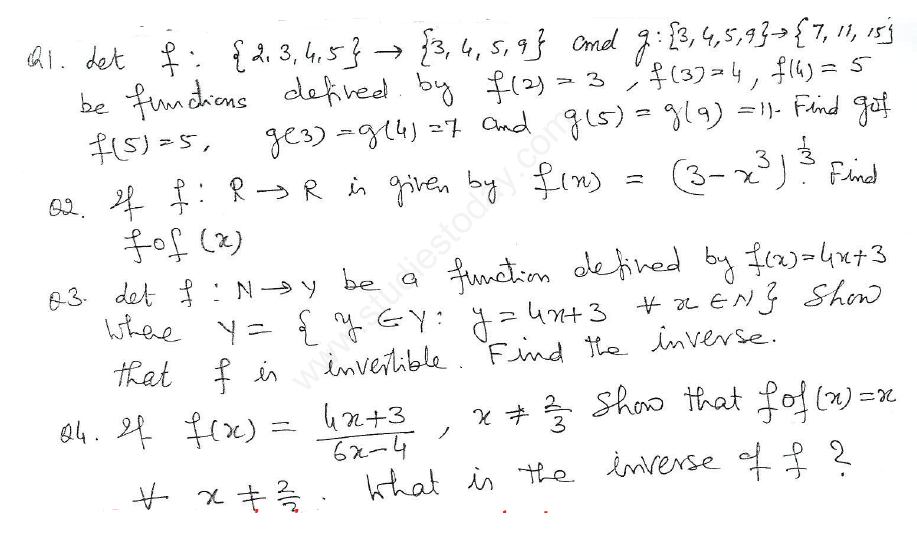 Q1. Let f : {2,3,4,5} → {3,4,5,9} and g:{3,4,5,9}→{7,11,15}
be functions defined by f(2) = 3, f(3)=4, f(4) = 5
f(5)=5, g(3) = g(4) =7 and g(5) = g(9) =11. Find gof
Q2. If f : R → R is given by f(x) = (3-x³)^{1/3}. Find
fof (x)
Q3. Let f : N → Y be a function defined by f(x)=4x+3
Where Y = { y ∈ Y: y = 4x+3 ∀ x ∈ N} Show
that f is invertible. Find the inverse.
Q4. If f(x) = (4x+3)/(6x-4), x ≠ 2/3 Show that fof(x)=x
∀ x ≠ 2/3. What is the inverse of f ?
www.studiestoday.com